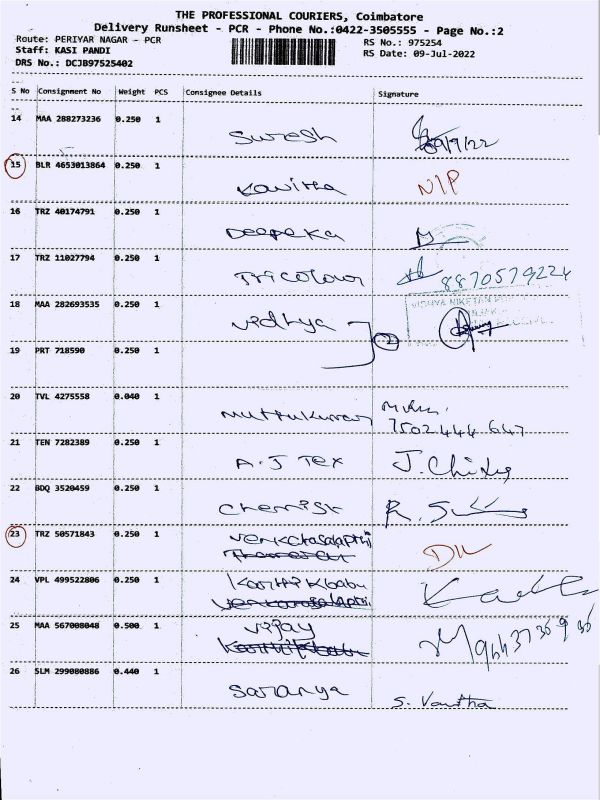 THE PROFESSIONAL COURIERS, Coimbatore
Delivery Runsheet - PCR - Phone No.:0422-3505555 - Page No.:2
Route: PERIYAR NAGAR - PCR
RS No.: 975254
Staff: KASI PANDI
RS Date: 09-Jul-2022
DRS No.: DCJB97525402
S No Consignment No Weight PCS Consignee Details Signature
14 MAA 288273236 0.250 1 Suresh 09/7/22
15 BLR 4653013864 0.250 1 Kavitha NIP
16 TRZ 40174791 0.250 1 Deepeka
17 TRZ 11027794 0.250 1 Tricolour 8870579224
18 MAA 282693535 0.250 1 Vidhya 2
VIDHYA NIKETAN
19 PRT 718590 0.250 1
20 TVL 4275558 0.040 1 Muthukumar
7502444647
21 TEN 7282389 0.250 1 A.J Tex
22 BDQ 3520459 0.250 1 Chemist
23 TRZ 50571843 0.250 1 DL
24 VPL 499522806 0.250 1 Karthikbabu
25 MAA 567008048 0.500 1 Vijay
26 SLM 299080886 0.440 1 Saranya S. Vanitha